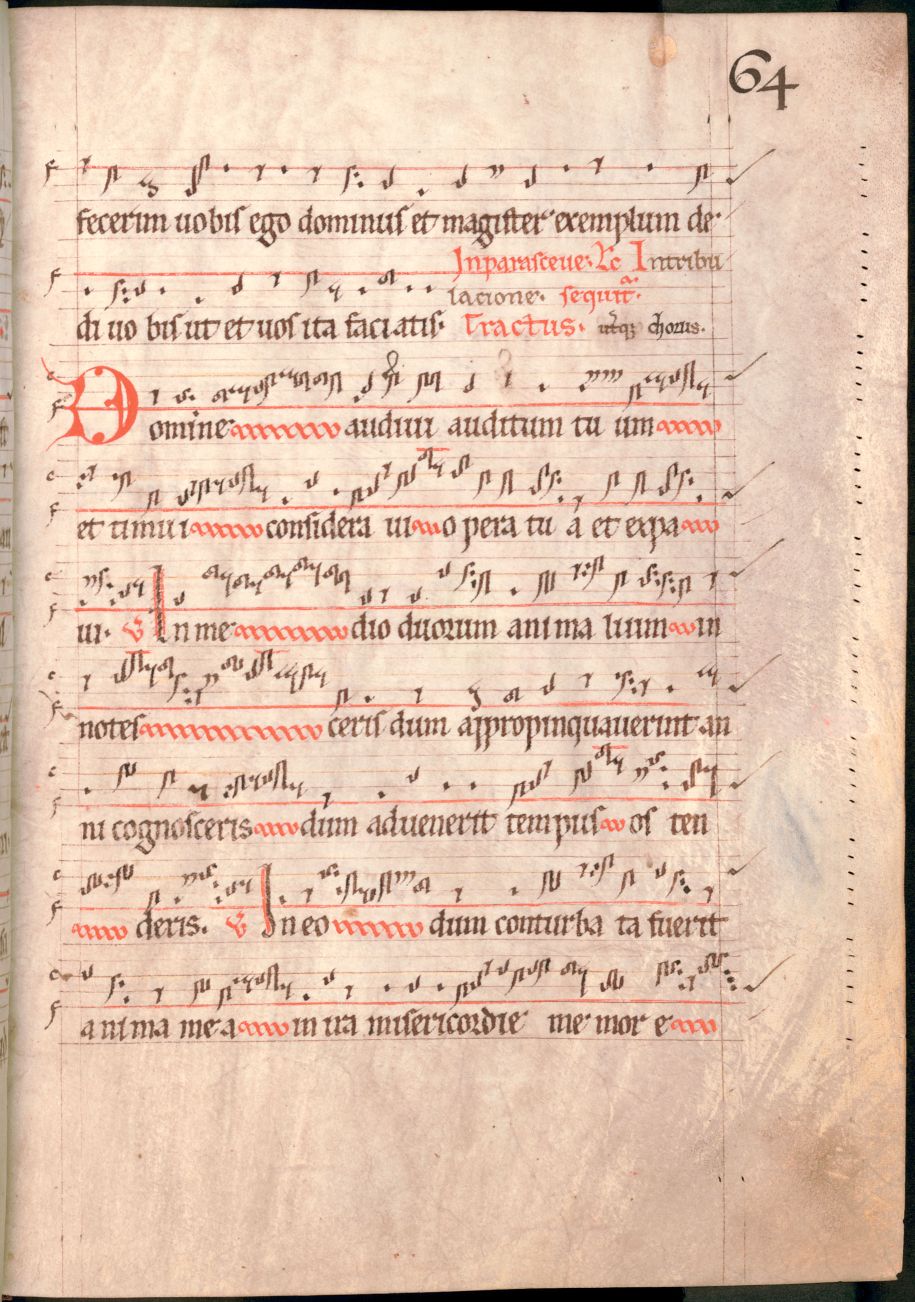 64
fecerim uobis ego dominus et magister exemplum de
di uo bis ut et uos ita faciatis.
Inparasceue. Lc Intribu
lacione. sequit̄.
Tractus. chorus.
Domine audiui auditum tu um
et timui considera ui o pera tu a et expa
ui. V In me dio duorum ani ma lium in
notes ceris dum appropinquauerint an
ni cognosceris dum aduenerit tempus os ten
deris. V In eo dum conturba ta fuerit
ani ma me a in ira misericordie me mor e